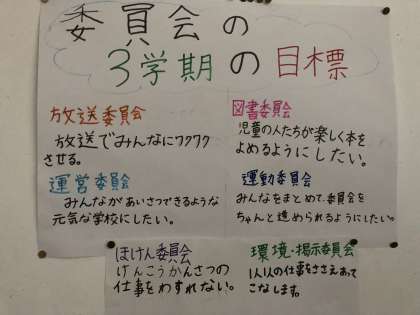 委員会の
3学期の目標
放送委員会
放送でみんなにワクワク
させる。
図書委員会
児童の人たちが楽しく本を
よめるようにしたい。
運営委員会
みんながあいさつできるような
元気な学校にしたい。
運動委員会
みんなをまとめて、委員会を
ちゃんと進められるようにしたい。
ほけん委員会
けんこうかんさつの
仕事をわすれない。
環境・掲示委員会
1人1人の仕事をささえあって
こなします。